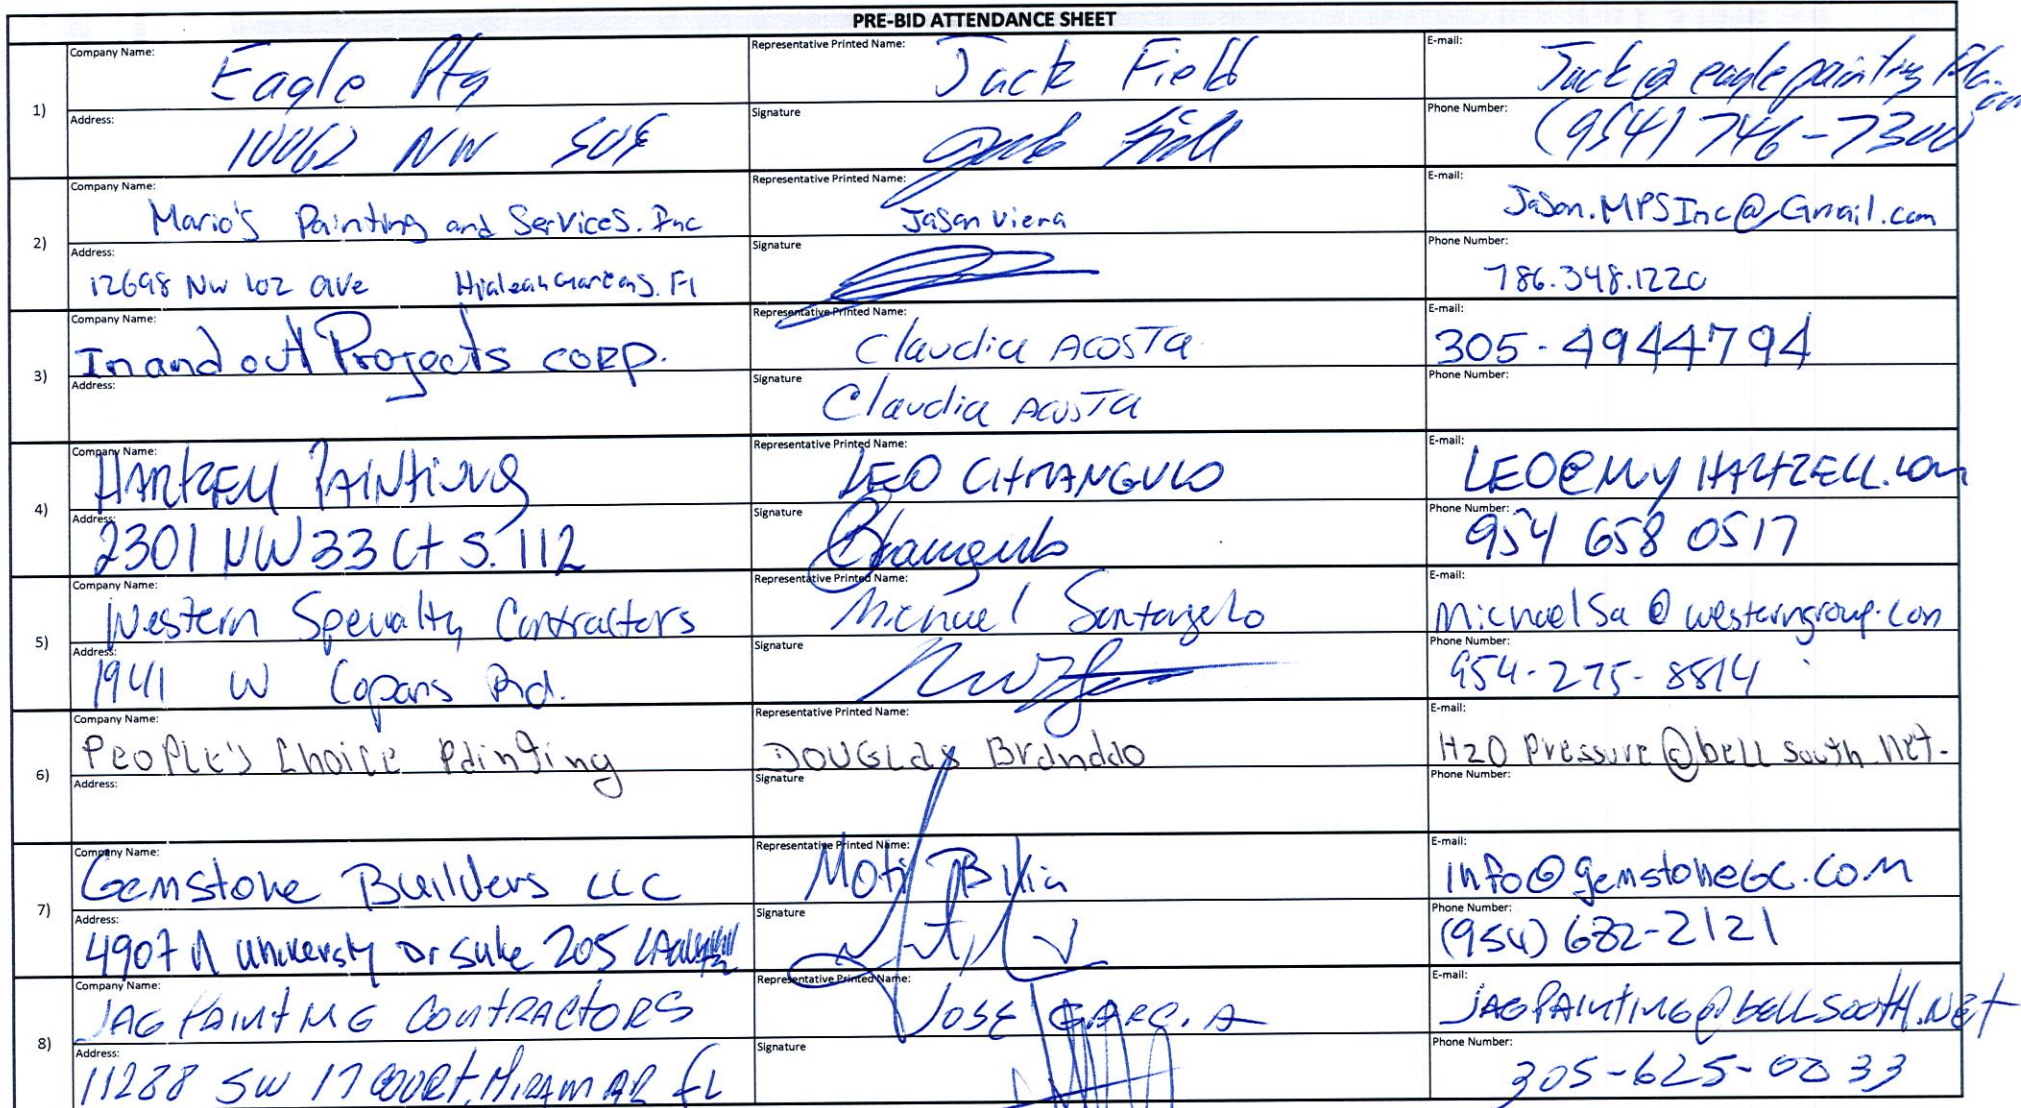 PRE-BID ATTENDANCE SHEET
1)
Company Name: Eagle Ptg
Representative Printed Name: Jack Field
E-mail: Jack@eaglepainting
Address: 10062 NW
Signature
Phone Number: (954) 746-7300
2)
Company Name: Mario's Painting and Services. Inc
Representative Printed Name: Jason Viera
E-mail: Jason.MPSInc@Gmail.com
Address: 12698 NW 102 ave Hialeah Gardens. Fl
Signature
Phone Number: 786.348.1220
3)
Company Name: In and out Projects CORP.
Representative Printed Name: Claudia ACOSTA
E-mail: 305-4944794
Address:
Signature Claudia ACOSTA
Phone Number:
4)
Company Name: HARTZELL PAINTING
Representative Printed Name: LEO CITRANGULO
E-mail: LEO@MYHARTZELL.com
Address: 2301 NW 33 Ct S. 112
Signature
Phone Number: 954 658 0517
5)
Company Name: Western Specialty Contractors
Representative Printed Name: Michael Santangelo
E-mail: MichaelSa@westerngroup.com
Address: 1941 W Copans Rd.
Signature
Phone Number: 954-275-8814
6)
Company Name: People's Choice Painting
Representative Printed Name: DOUGLAS Brandao
E-mail: H2O Pressure@bellsouth.net.
Address:
Signature
Phone Number:
7)
Company Name: Gemstone Builders LLC
Representative Printed Name: Moti
E-mail: info@gemstoneGC.com
Address: 4907 N University Dr Suite 205
Signature
Phone Number: (954) 682-2121
8)
Company Name: JAG PAINTING CONTRACTORS
Representative Printed Name: JOSE GARCIA
E-mail: JAGPAINTING@BELLSOUTH.NET
Address: 11288 SW 17 COURT, MIRAMAR FL
Signature
Phone Number: 305-625-0033